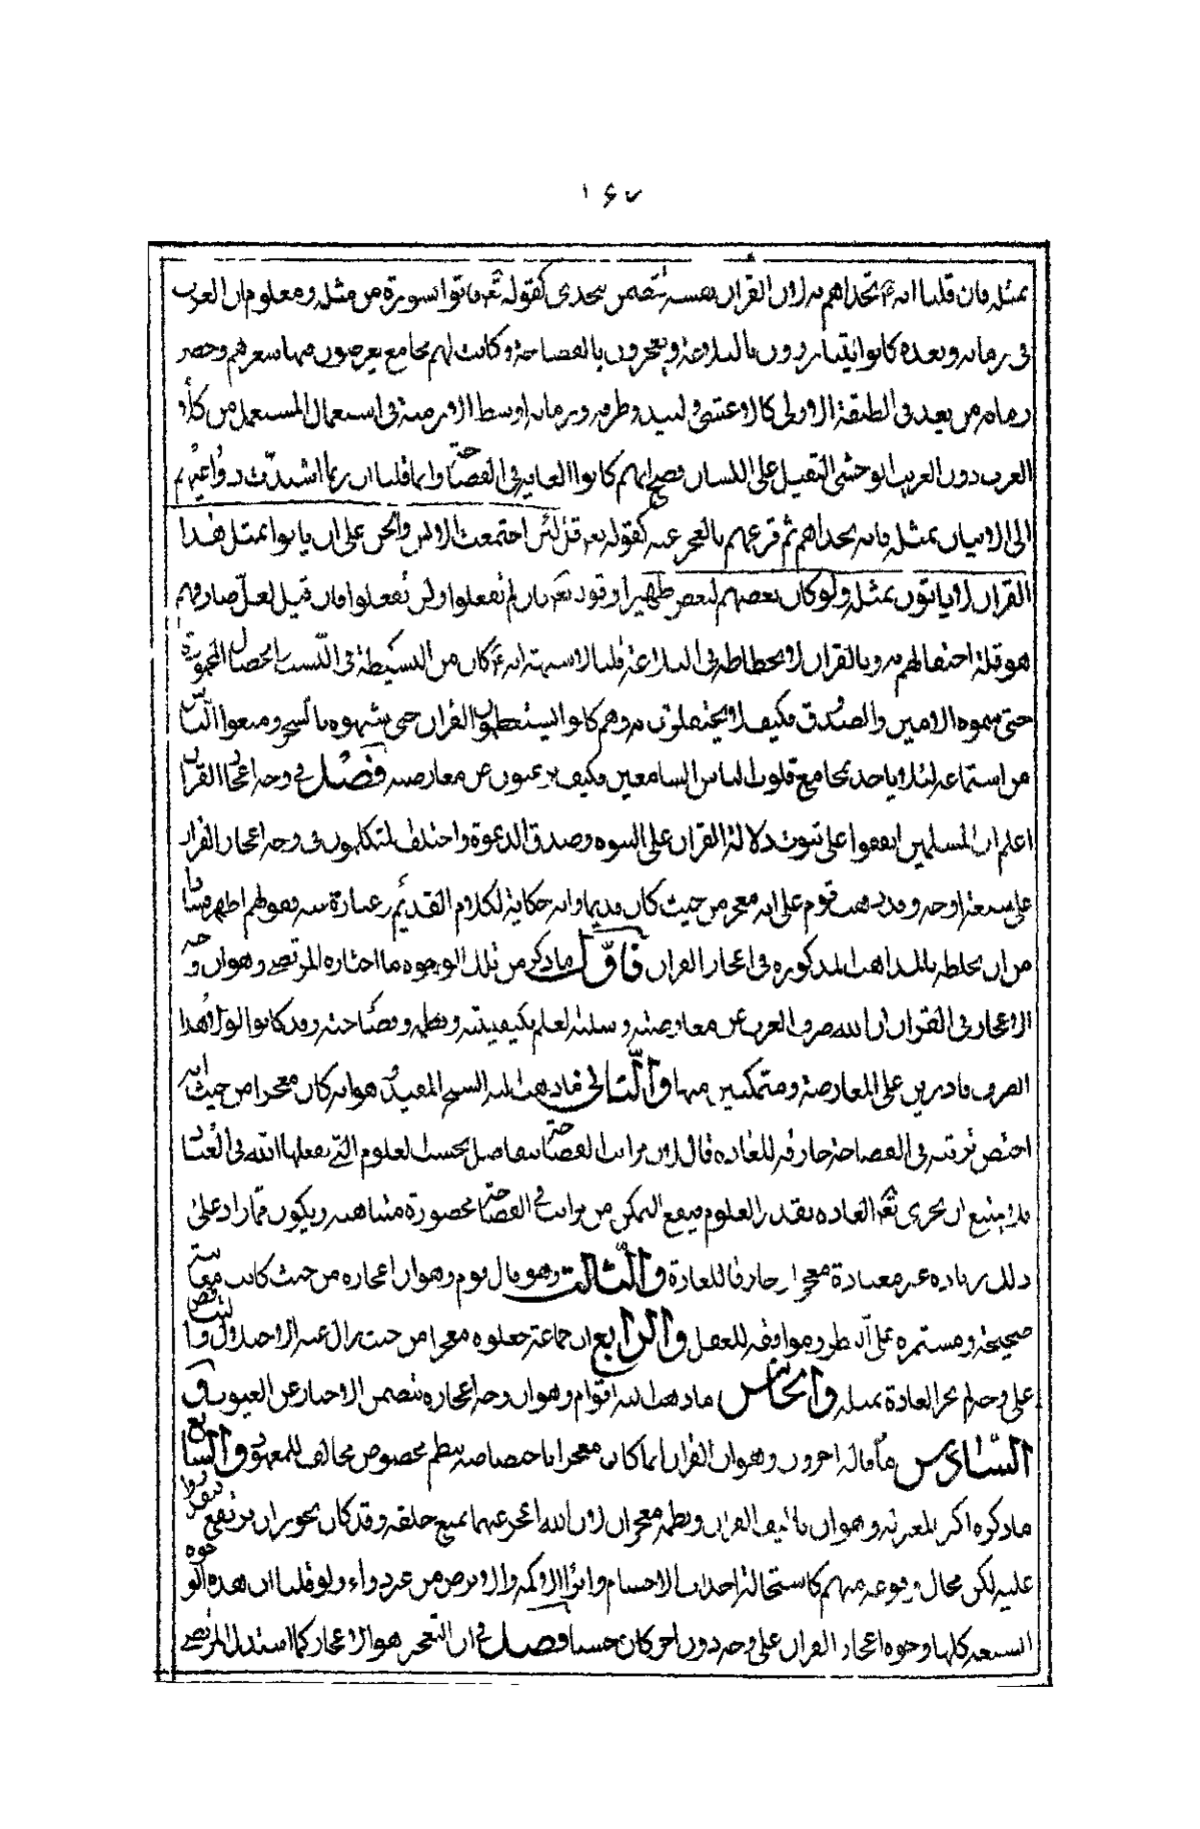 ١٦٧
بمثله فان قلنا انه ع تحداهم به لان القران نفسه يتضمن التحدي كقوله تعالى فاتوا بسورة من مثله ومعلوم ان العرب
في زمانه وبعده كانوا يتبارون بالبلاغة ويفخرون بالفصاحة وكانت لهم مجامع يعرضون فيها شعرهم وحضر
زمانه من يعد في الطبقة الاولى كالاعشى ولبيد وطرفه وزمانه اوسط الازمنة في استعمال المستعمل من كلام
العرب دون الغريب الوحشي الثقيل على اللسان فصح انهم كانوا الغاية في الفصاحة وانما قلنا ان اشتدت دواعيهم
الى الاتيان بمثله فانه تحداهم ثم قرعهم بالعجز عنه كقوله تع قل لئن اجتمعت الانس والجن على ان ياتوا بمثل هذا
القران لا ياتون بمثله ولو كان بعضهم لبعض ظهيرا وقوله تع فان لم تفعلوا ولن تفعلوا فان قيل لعل صارفهم
هو قلة احتفالهم به وبالقران لانحطاطه في البلاغة قلنا لا شبهة انه ع كان من البسيطة في النسب الخصال المحمودة
حتى سموه الامين والصدوق فكيف لا يحتفلون به وهم كانوا يستعظمون القران حتى شهروه بالسحر ومنعوا الناس
من استماعه لئلا ياخذ بمجامع قلوب الناس السامعين فكيف يرغبون عن معارضته فصل في وجه اعجاز القران
اعلم ان المسلمين اتفقوا على ثبوت دلالة القران على النبوه وصدق الدعوة واختلف المتكلمون في وجه اعجاز القران
على سبعة اوجه وقد ذهب قوم على انه معجز من حيث كان قديما وانه حكاية لكلام القديم وعبارة عنه فقولهم اظهر فسادا
من ان يخلطه بالمذاهب المذكوره في اعجاز القران فاول ما ذكر من تلك الوجوه ما اختاره المرتضى وهو ان وجه
الاعجاز في القران ان الله صرف العرب عن معارضته وسلبهم لعلم بكيفية ونظمه وفصاحته وقد كانوا لولا هذا
الصرف قادرين على المعارضة ومتمكنين منها والثاني ما ذهب اليه الشيخ المفيد وهو انه كان معجزا من حيث انه
اختص برتبة في الفصاحة خارقه للعاده قال لان مراتب الفصاحة تتفاضل بحسب العلوم التي يفعلها الله في العباد
فلا يمتنع ان يجري تع العاده بقدر من العلوم فيقع التمكن من مراتب في الفصاحة محصورة متناهيه ويكون ما زاد على
ذلك زياده غير معتادة معجزا خارقا للعادة والثالث وهو ما قال قوم وهو ان اعجازه من حيث كانت معانيه
صحيحة ومستمره على النظر وموافقه للعقل والرابع ان جماعة جعلوه معجزا من حيث زال عنه الاختلاف والتناقض
على وجه لم تجر العادة بمثله والخامس ما ذهب اليه اقوام وهو ان وجه اعجازه تتضمن الاخبار عن الغيوب و
السادس ما قاله اخرون وهو ان القران انما كان معجزا باختصاصه بنظم مخصوص مخالف للمعهود والسابع
ما ذكره اكثر المعتزله وهو ان تاليف القران ونظمه معجزان لان الله اعجز عنهما بمنع خلقه وقد كان يجوز ان يرتفع فيقدروا
عليه لكن محال وقوعه منهم كاستحالة احداث الاجسام وابراء الاكمه والابرص من غير دواء ولو قلنا ان هذه الوجوه
السبعه كلها وجوه اعجاز القران على وجه دون اخر كان حسنا فصل في ان التعجيز هو الاعجاز كما استدل المرتضى